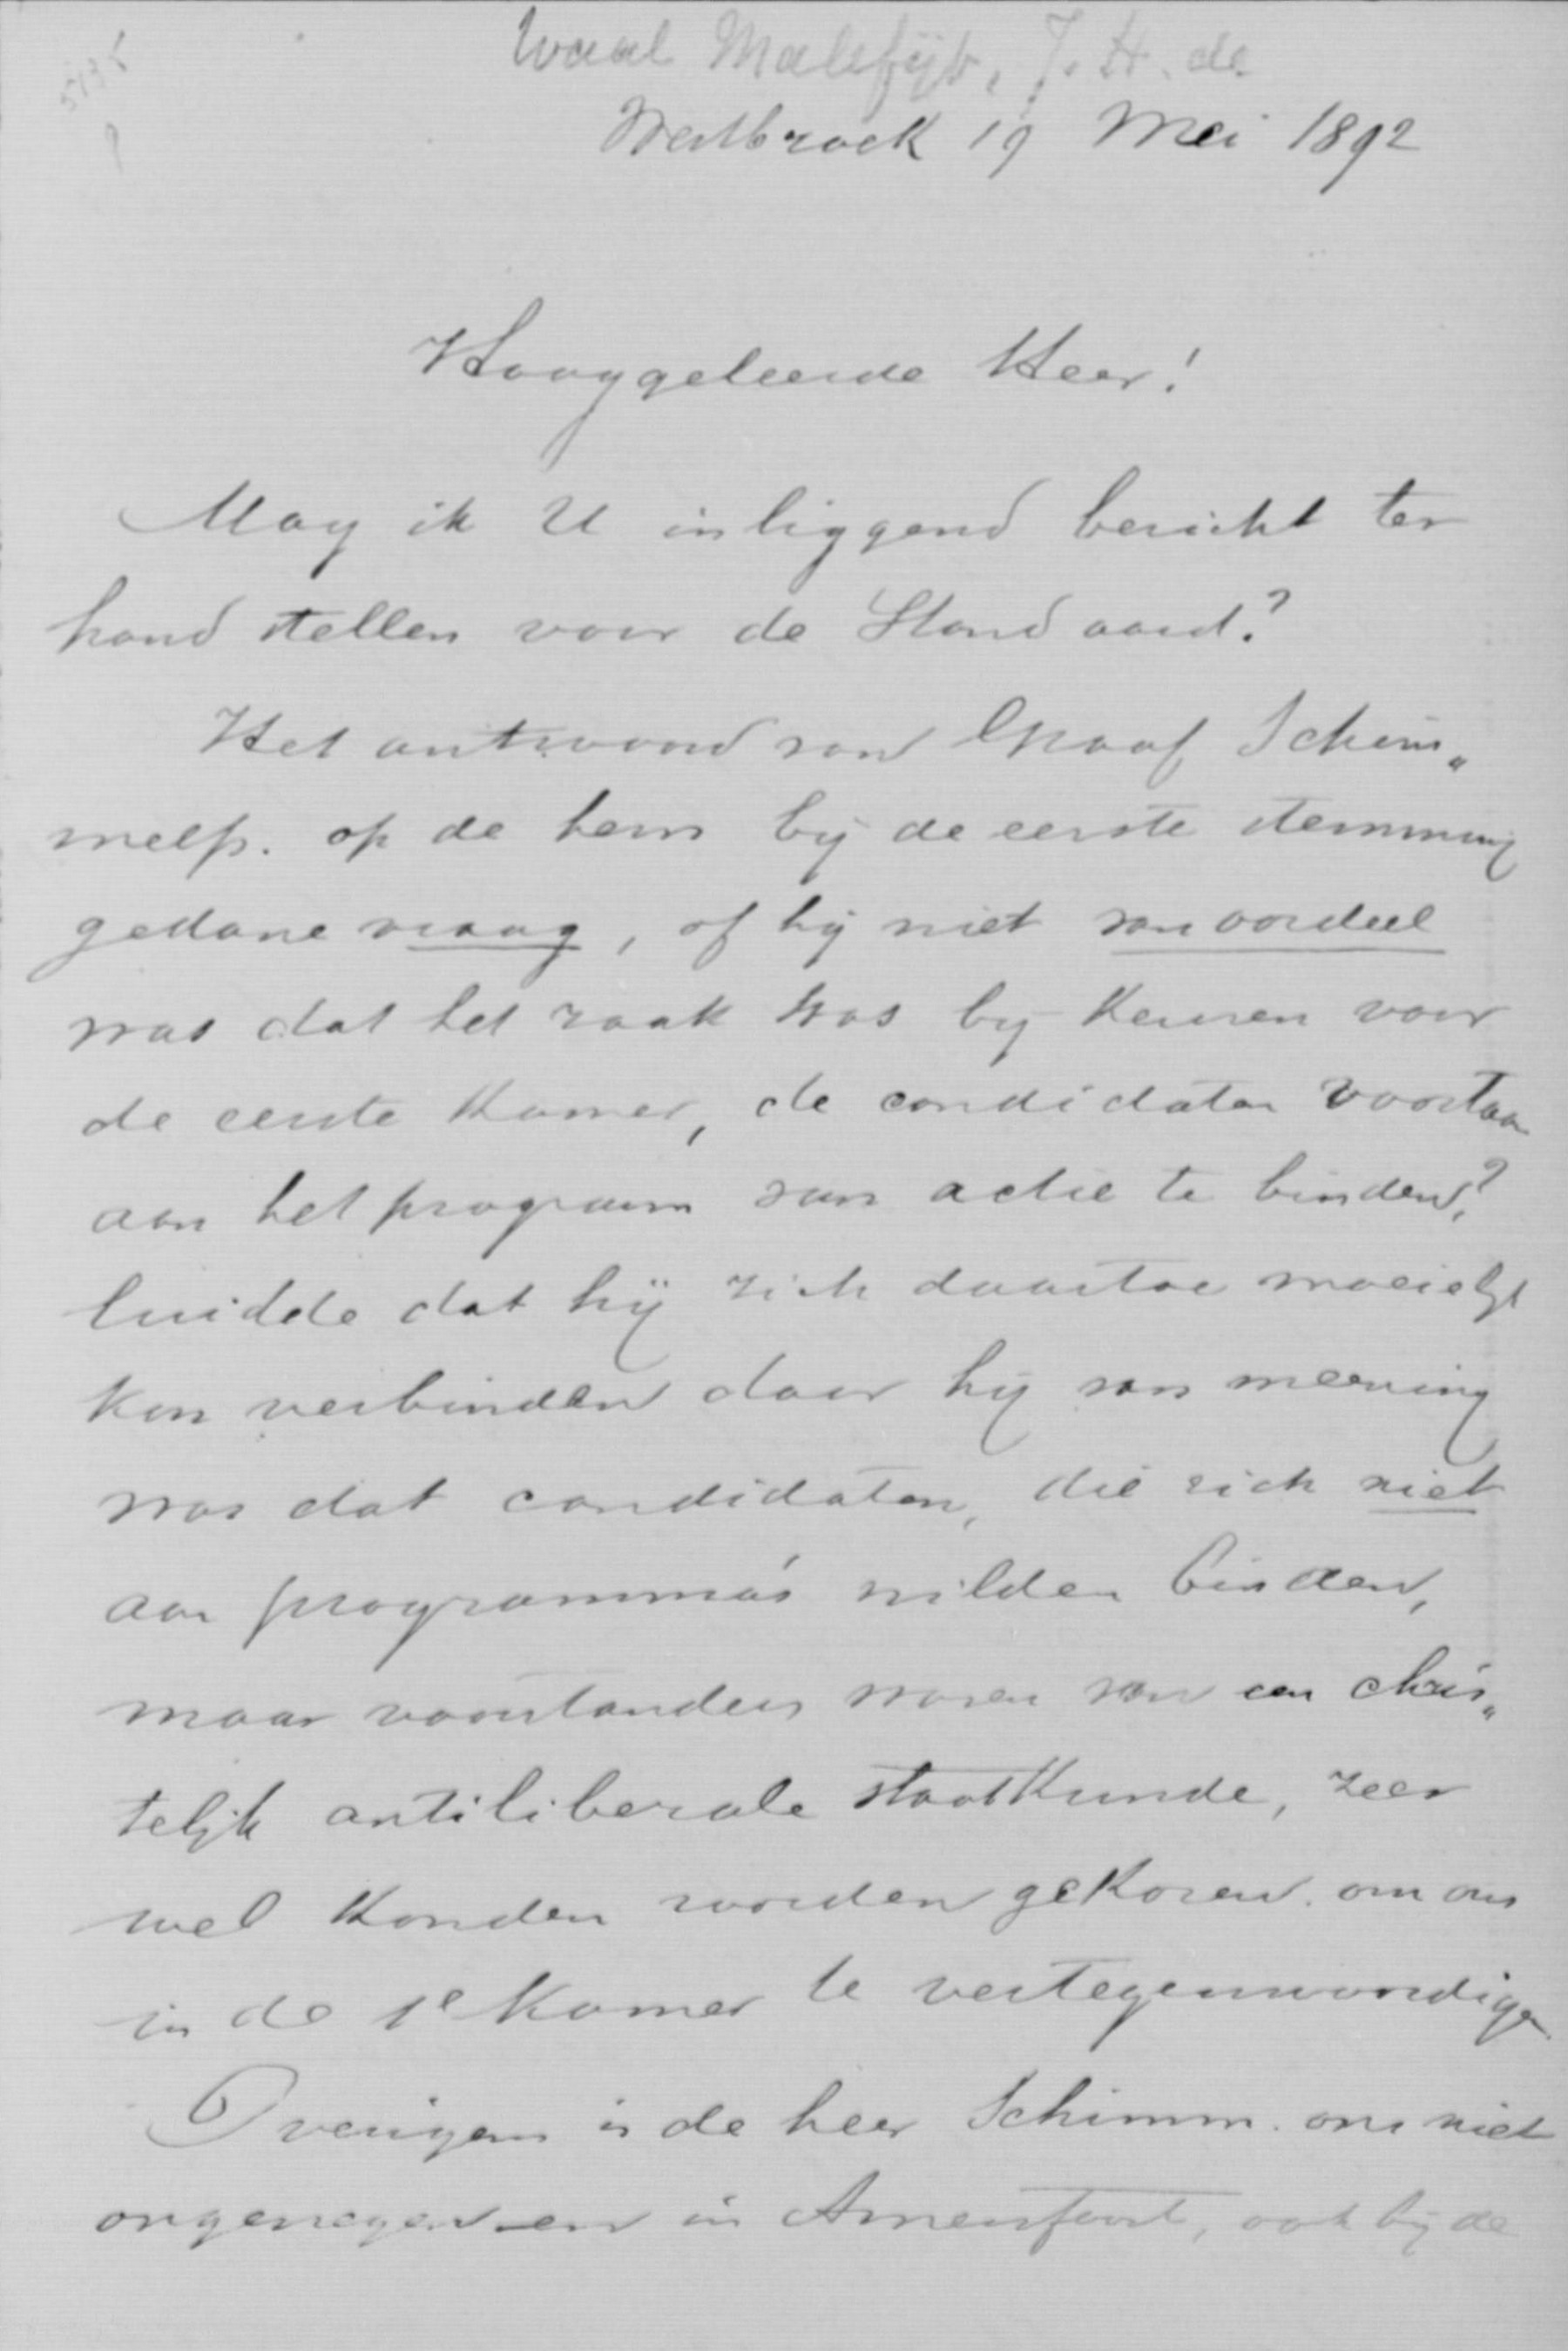 Waal Malefijt, J. H. de
Westbroek 19 Mei 1892
Hooggeleerde Heer!
Mag ik U inliggend bericht ter
hand stellen voor de Standaard?
Het antwoord van Graaf Schim„
melp. op de hem bij de eerste stemming
gedane vraag, of hij niet van oordeel
was dat het zaak was bij keuzen voor
de eerste Kamer, de candidaten voortaan
aan het program van actie te binden?
luidde dat hij zich daartoe moeielijk
kon verbinden daar hij van meening
was dat candidaten, die zich niet
aan programma's wilden binden,
maar voorstanders waren van een chris„
telijk antiliberale staatkunde, zeer
wel konden worden gekozen om ons
in de 1e Kamer te vertegenwoordigen
Overigens is de heer Schimm. ons niet
ongenegen en in Amersfoort, ook bij de